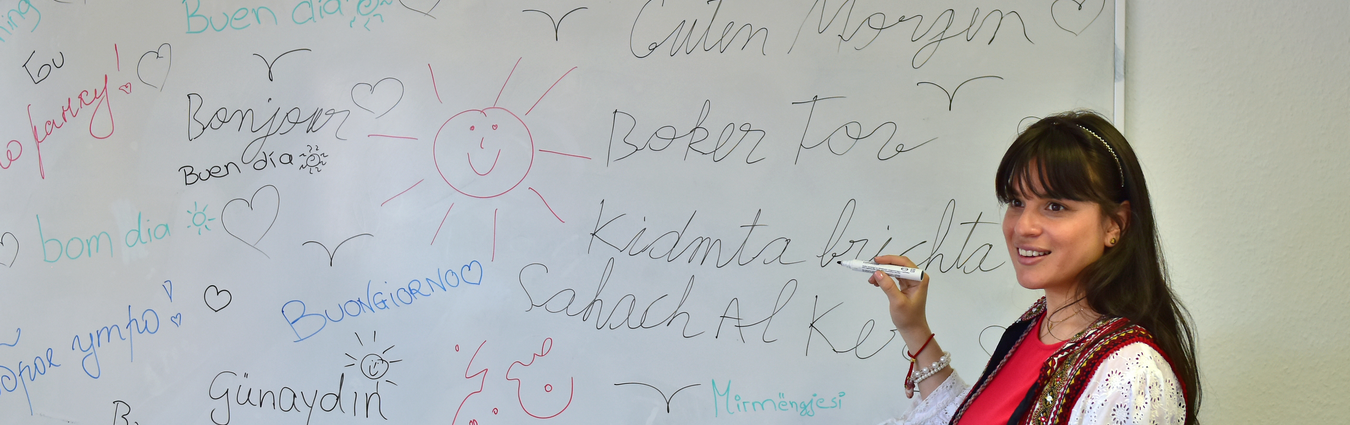 Buen dia
Guten Morgen
ранку!
Bonjour
Buen dia
Boker Tov
bom dia
Kidmta brichta
BUONGIORNO
Sahach Al Ker
утро!
Günaydın
Mirmëngjesi